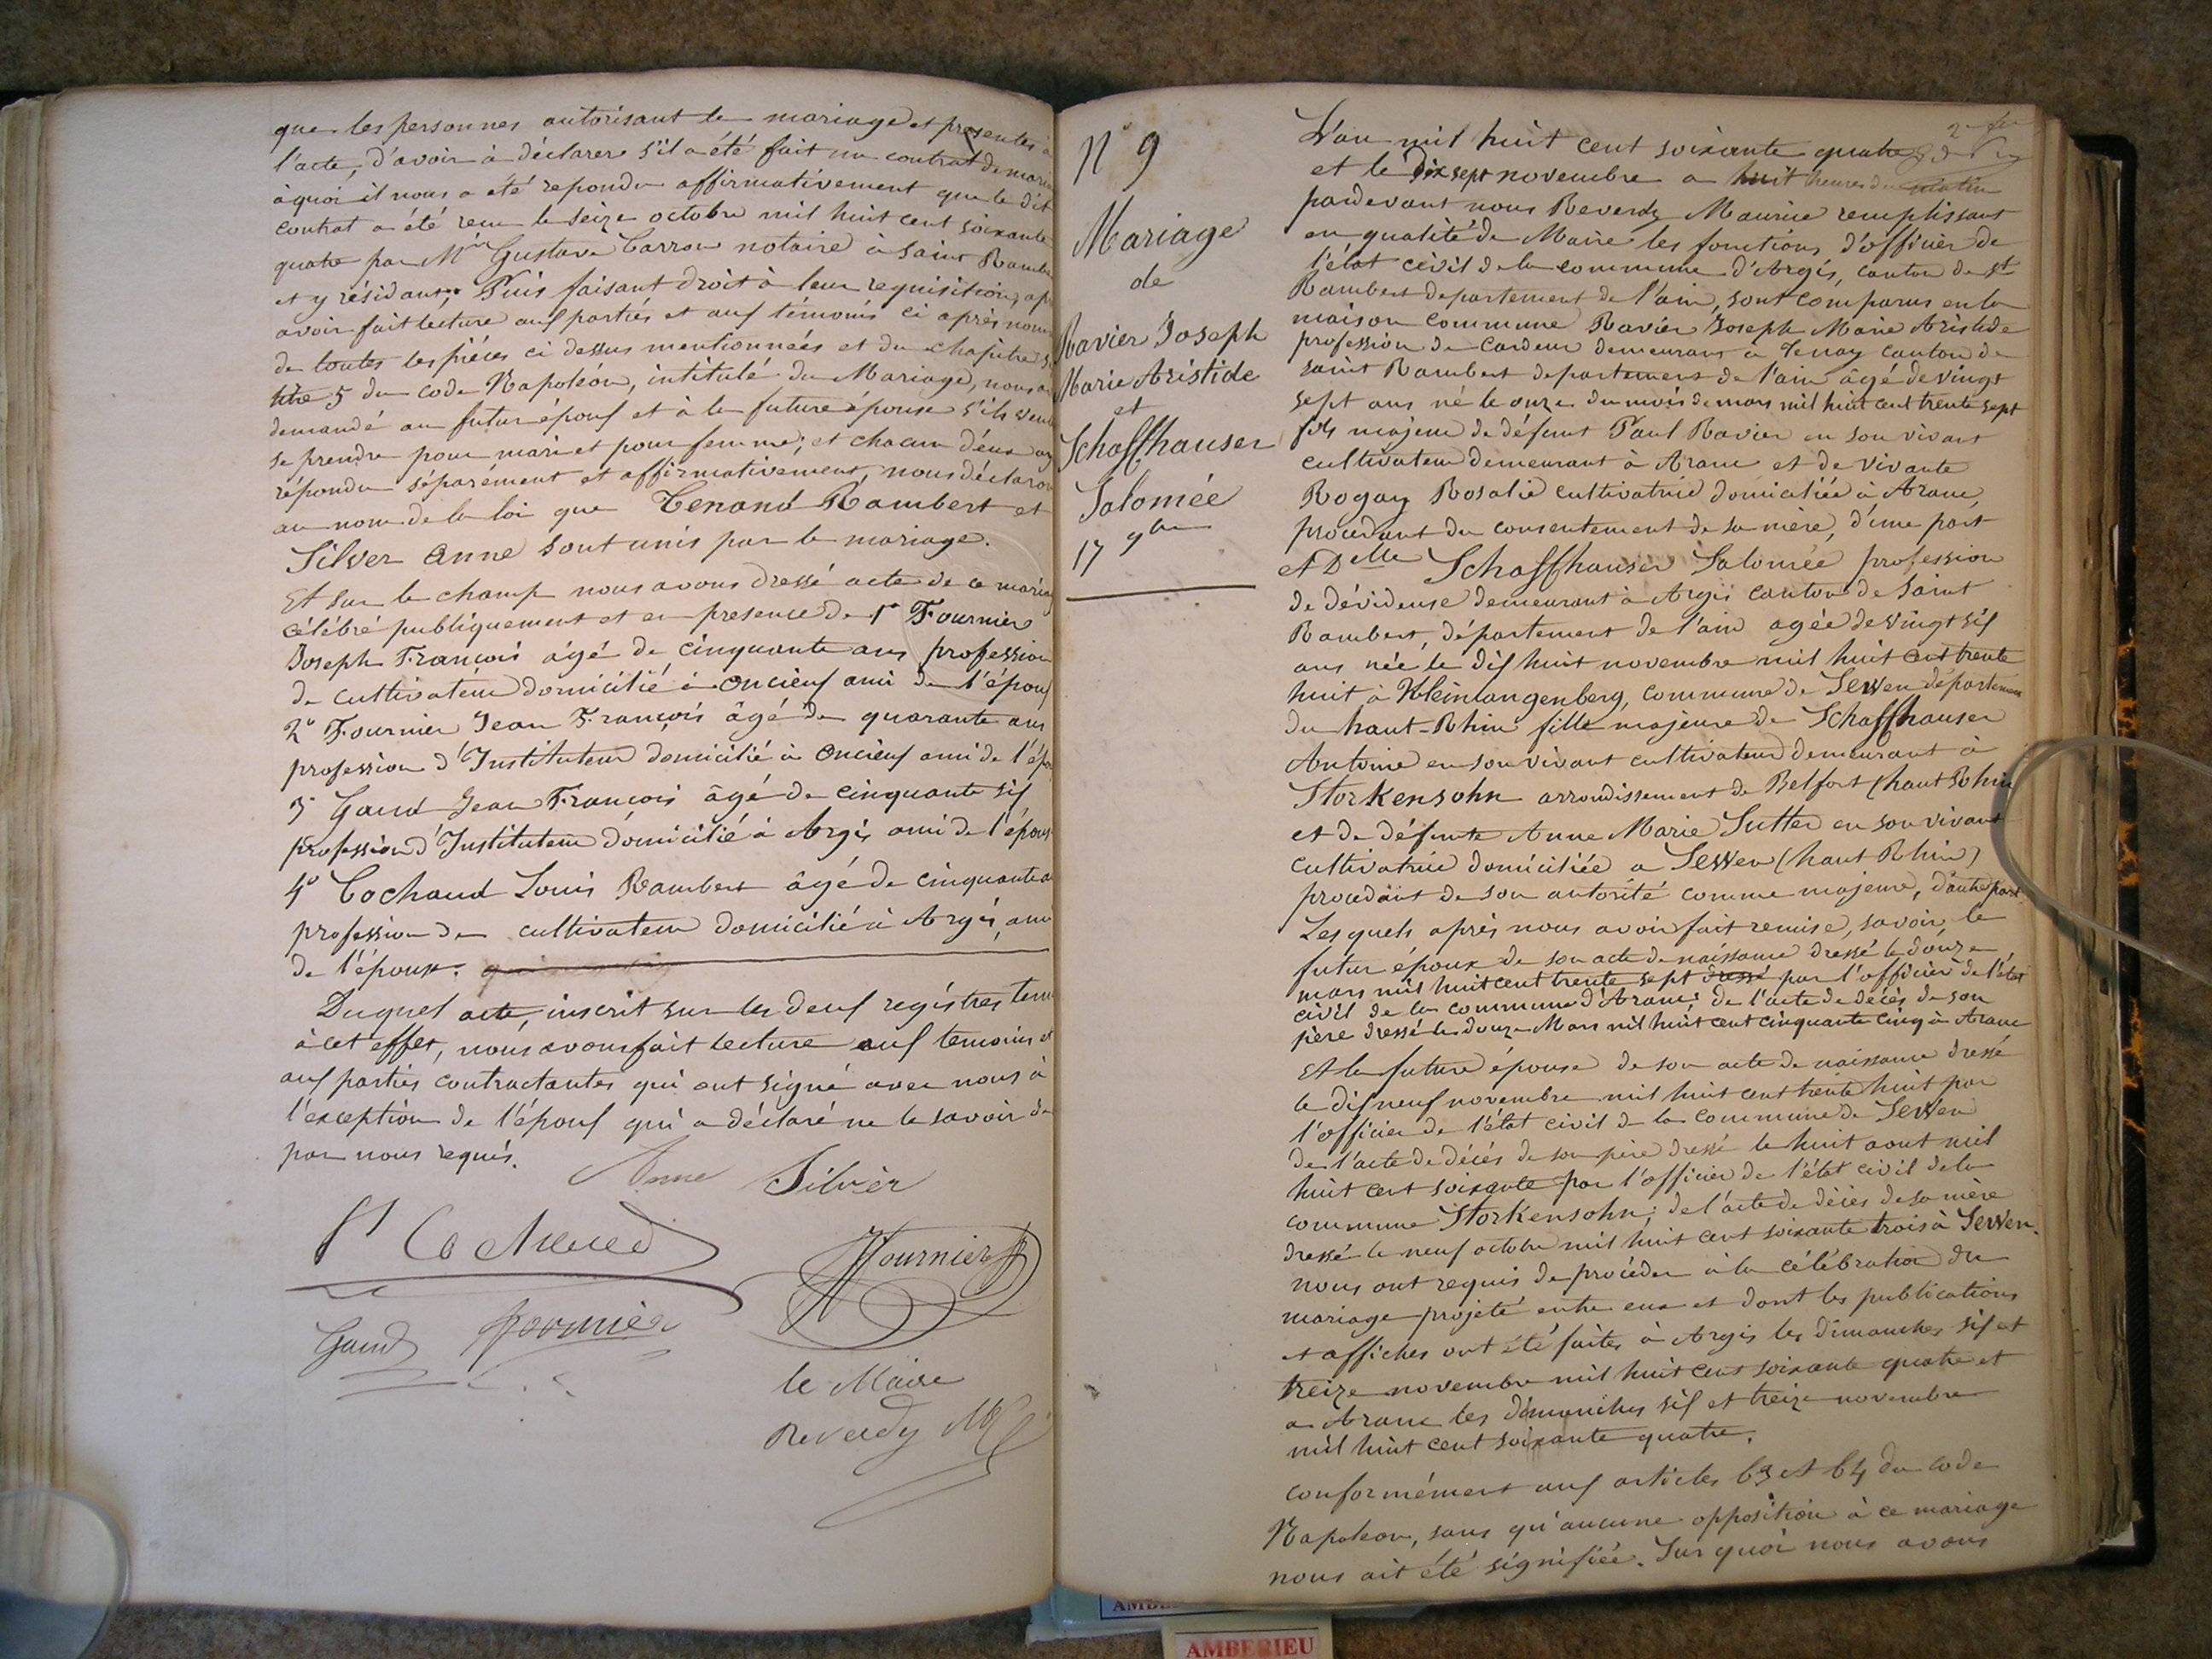 que les personnes autorisant le mariage et présentes à
l'acte, d'avoir à déclarer s'il a été fait un contrat de maria
à quoi il nous a été repondu affirmativement que le dit
contrat a été recu le seize octobre mil huit cent soixante
quatre par Me Gustave Carron notaire à Saint Rambe
et y résidant; Puis faisant droit à leur requisition, ap
avoir fait lecture aux parties et aux témoins ci après nom
de toutes les pièces ci dessus mentionnées et du chapitre
titre 5 du code Napoléon, intitulé du Mariage, nous a
demandé au futur époux et à la future épouse s'ils veule
se prendre pour mari et pour femme; et chacun d'eux ay
répondu séparément et affirmativement, nous déclaron
au nom de la loi que Tenand Rambert et
Silver Anne sont unis par le mariage.
Et sur le champ nous avons dressé acte de ce mariag
célébré publiquement et en presence de 1° Fournier
Joseph François âgé de cinquante ans profession
de cultivateur domicilié à Oncieux ami de l'époux
2° Fournier Jean François âgé de quarante ans
profession d'Instituteur domicilié à Oncieux ami de l'épo
3° Gaud Jean François âgé de cinquante six
profession d'Instituteur domicilié à Argis ami de l'épous
4° Cochaud Louis Rambert âgé de cinquante a
profession de cultivateur domicilié à Argis, ami
de l'époux.
Duquel acte, inscrit sur les deux registres tenu
à cet effet, nous avons fait lecture aux temoins et
aux parties contractantes qui ont signé avec nous à
l'exception de l'époux qui a déclaré ne le savoir de
par nous requis.
Anne Silvèr
Ls Cochaud
Fournier
Gaud Fournier
le Maire
Reverdy M
N° 9
Mariage
de
Ravier Joseph
Marie Aristide
et
Schaffhauser
Salomée
17 9bre
L'an mil huit cent soixante quatre
et le dix sept novembre a huit heures du matin
pardevant nous Reverdy Maurice remplissant
en qualité de Maire les fonctions d'officier de
l'état civil de la commune d'Argis, canton de St
Rambert departement de l'ain, sont comparus en la
maison commune Ravier Joseph Marie Aristide
profession de Cardeur demeurant a Tenay canton de
saint Rambert departement de l'ain âgé de vingt
sept ans né le onze du mois de mars mil huit cent trente sept
fils majeur de défunt Paul Ravier en son vivant
cultivateur demeurant à Aranc et de vivante
Rogay Rosalie cultivatrice domiciliée à Aranc,
procedant du consentement de sa mère, d'une part
et Delle Schaffhauser Salomée profession
de dévideuse demeurant à Argis canton de Saint
Rambert, département de l'ain agée de vingt six
ans née le dix huit novembre mil huit cent trente
huit à Kleinlangenberg, commune de Sewen département
du haut-Rhin fille majeure de Schaffhauser
Antoine en son vivant cultivateur demeurant à
Storkensohn arrondissement de Belfort (haut Rhin
et de défunte Anne Marie Sutter en son vivant
cultivatrice domiciliée a Sewen (haut Rhin)
procedant de son autorité comme majeure, d'autre part
Lesquels après nous avoir fait remise, savoir, le
futur époux de son acte de naissance dressé le douze
mars mil huit cent trente sept dressé par l'officier de l'état
civil de la commune d'Aranc; de l'acte de décès de son
père dressé le douze Mars mil huit cent cinquante cinq à Aranc
Et la future épouse de son acte de naissance dressé
le dix neuf novembre mil huit cent trente huit par
l'officier de l'état civil de la commune de Sewen
de l'acte de décès de son père dressé le huit aout mil
huit cent soixante par l'officier de l'état civil de la
commune Storkensohn; de l'acte de décès de sa mère
dressé le neuf octobre mil huit cent soixante trois à Sewen.
nous ont requis de procéder à la célébration du
mariage projeté entre eux et dont les publications
et affiches ont été faites à Argis les dimanches six et
treize novembre mil huit cent soixante quatre et
a Aranc les dimanches six et treize novembre
mil huit cent soixante quatre.
conformément aux articles 63 et 64 du code
Napoleon, sans qu'aucune opposition à ce mariage
nous ait été signifiée. Sur quoi nous avons
AMBERIEU